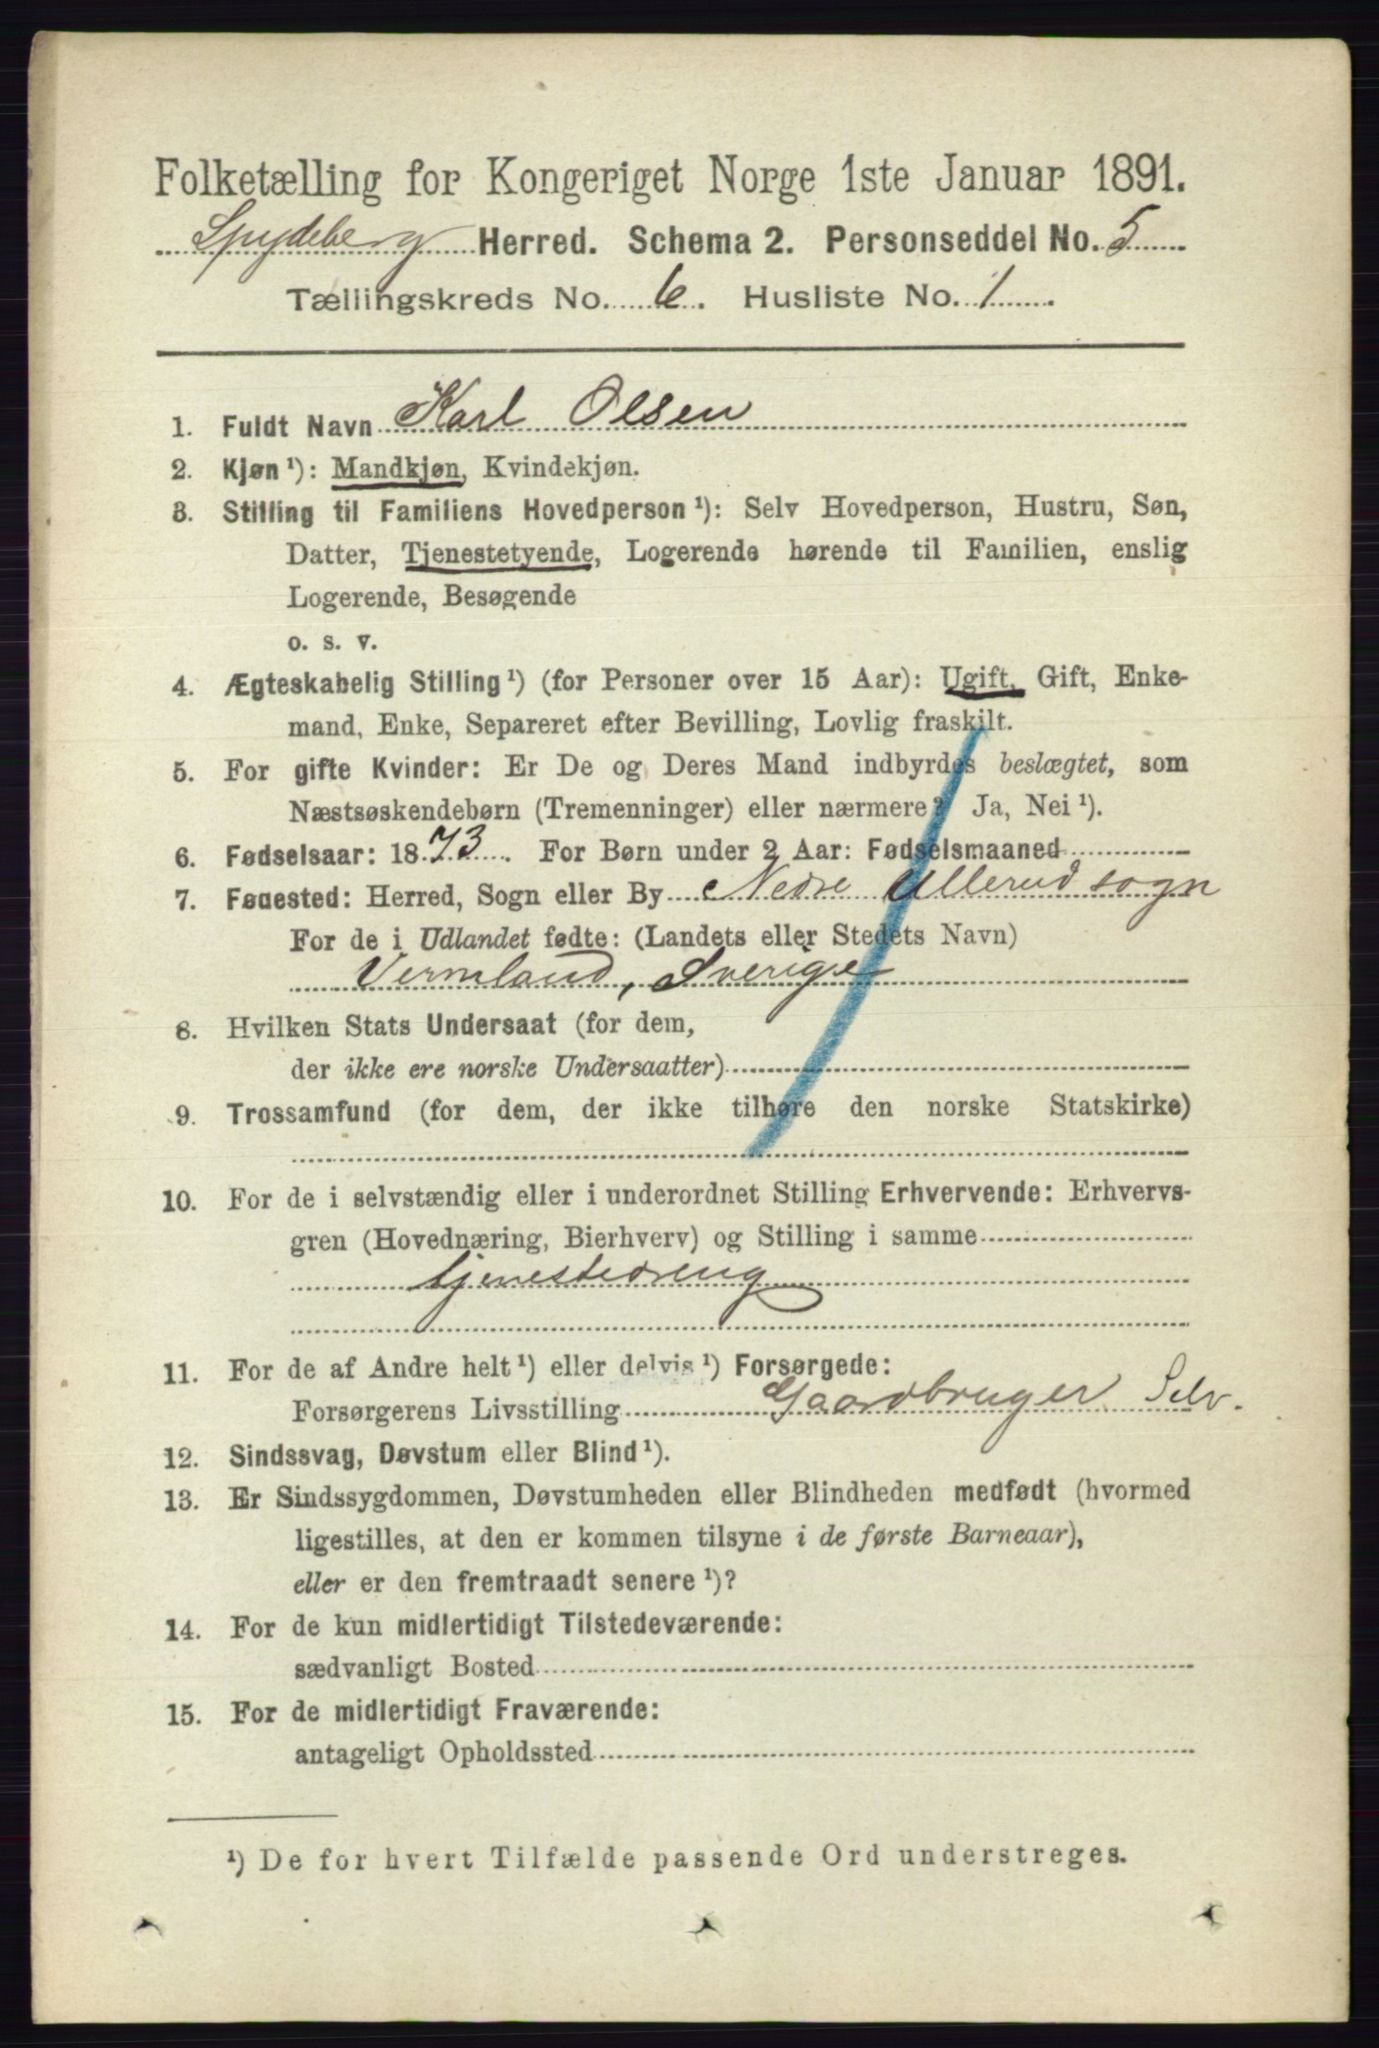 Folketælling for Kongeriget Norge 1ste Januar 1891.
Spydeberg Herred. Schema 2. Personseddel No. 5
Tællingskreds No. 6. Husliste No. 1.
1. Fuldt Navn Karl Olsen
2. Kjøn ¹): Mandkjøn, Kvindekjøn.
3. Stilling til Familiens Hovedperson ¹): Selv Hovedperson, Hustru, Søn,
Datter, Tjenestetyende, Logerende hørende til Familien, enslig
Logerende, Besøgende
o. s. v.
4. Ægteskabelig Stilling ¹) (for Personer over 15 Aar): Ugift, Gift, Enke-
mand, Enke, Separeret efter Bevilling, Lovlig fraskilt.
5. For gifte Kvinder: Er De og Deres Mand indbyrdes beslægtet, som
Næstsøskendebørn (Tremenninger) eller nærmere? Ja, Nei ¹).
6. Fødselsaar: 1873. For Børn under 2 Aar: Fødselsmaaned
7. Fødested: Herred, Sogn eller By Nedre Ullerud sogn
For de i Udlandet fødte: (Landets eller Stedets Navn)
Vermland, Sverige
8. Hvilken Stats Undersaat (for dem,
der ikke ere norske Undersaatter)
9. Trossamfund (for dem, der ikke tilhøre den norske Statskirke)
10. For de i selvstændig eller i underordnet Stilling Erhvervende: Erhvervs-
gren (Hovednæring, Bierhverv) og Stilling i samme
tjenestedreng
11. For de af Andre helt ¹) eller delvis ¹) Forsørgede:
Forsørgerens Livsstilling Gaardbruger Selv.
12. Sindssvag, Døvstum eller Blind ¹).
13. Er Sindssygdommen, Døvstumheden eller Blindheden medfødt (hvormed
ligestilles, at den er kommen tilsyne i de første Barneaar),
eller er den fremtraadt senere ¹)?
14. For de kun midlertidigt Tilstedeværende:
sædvanligt Bosted
15. For de midlertidigt Fraværende:
antageligt Opholdssted
¹) De for hvert Tilfælde passende Ord understreges.